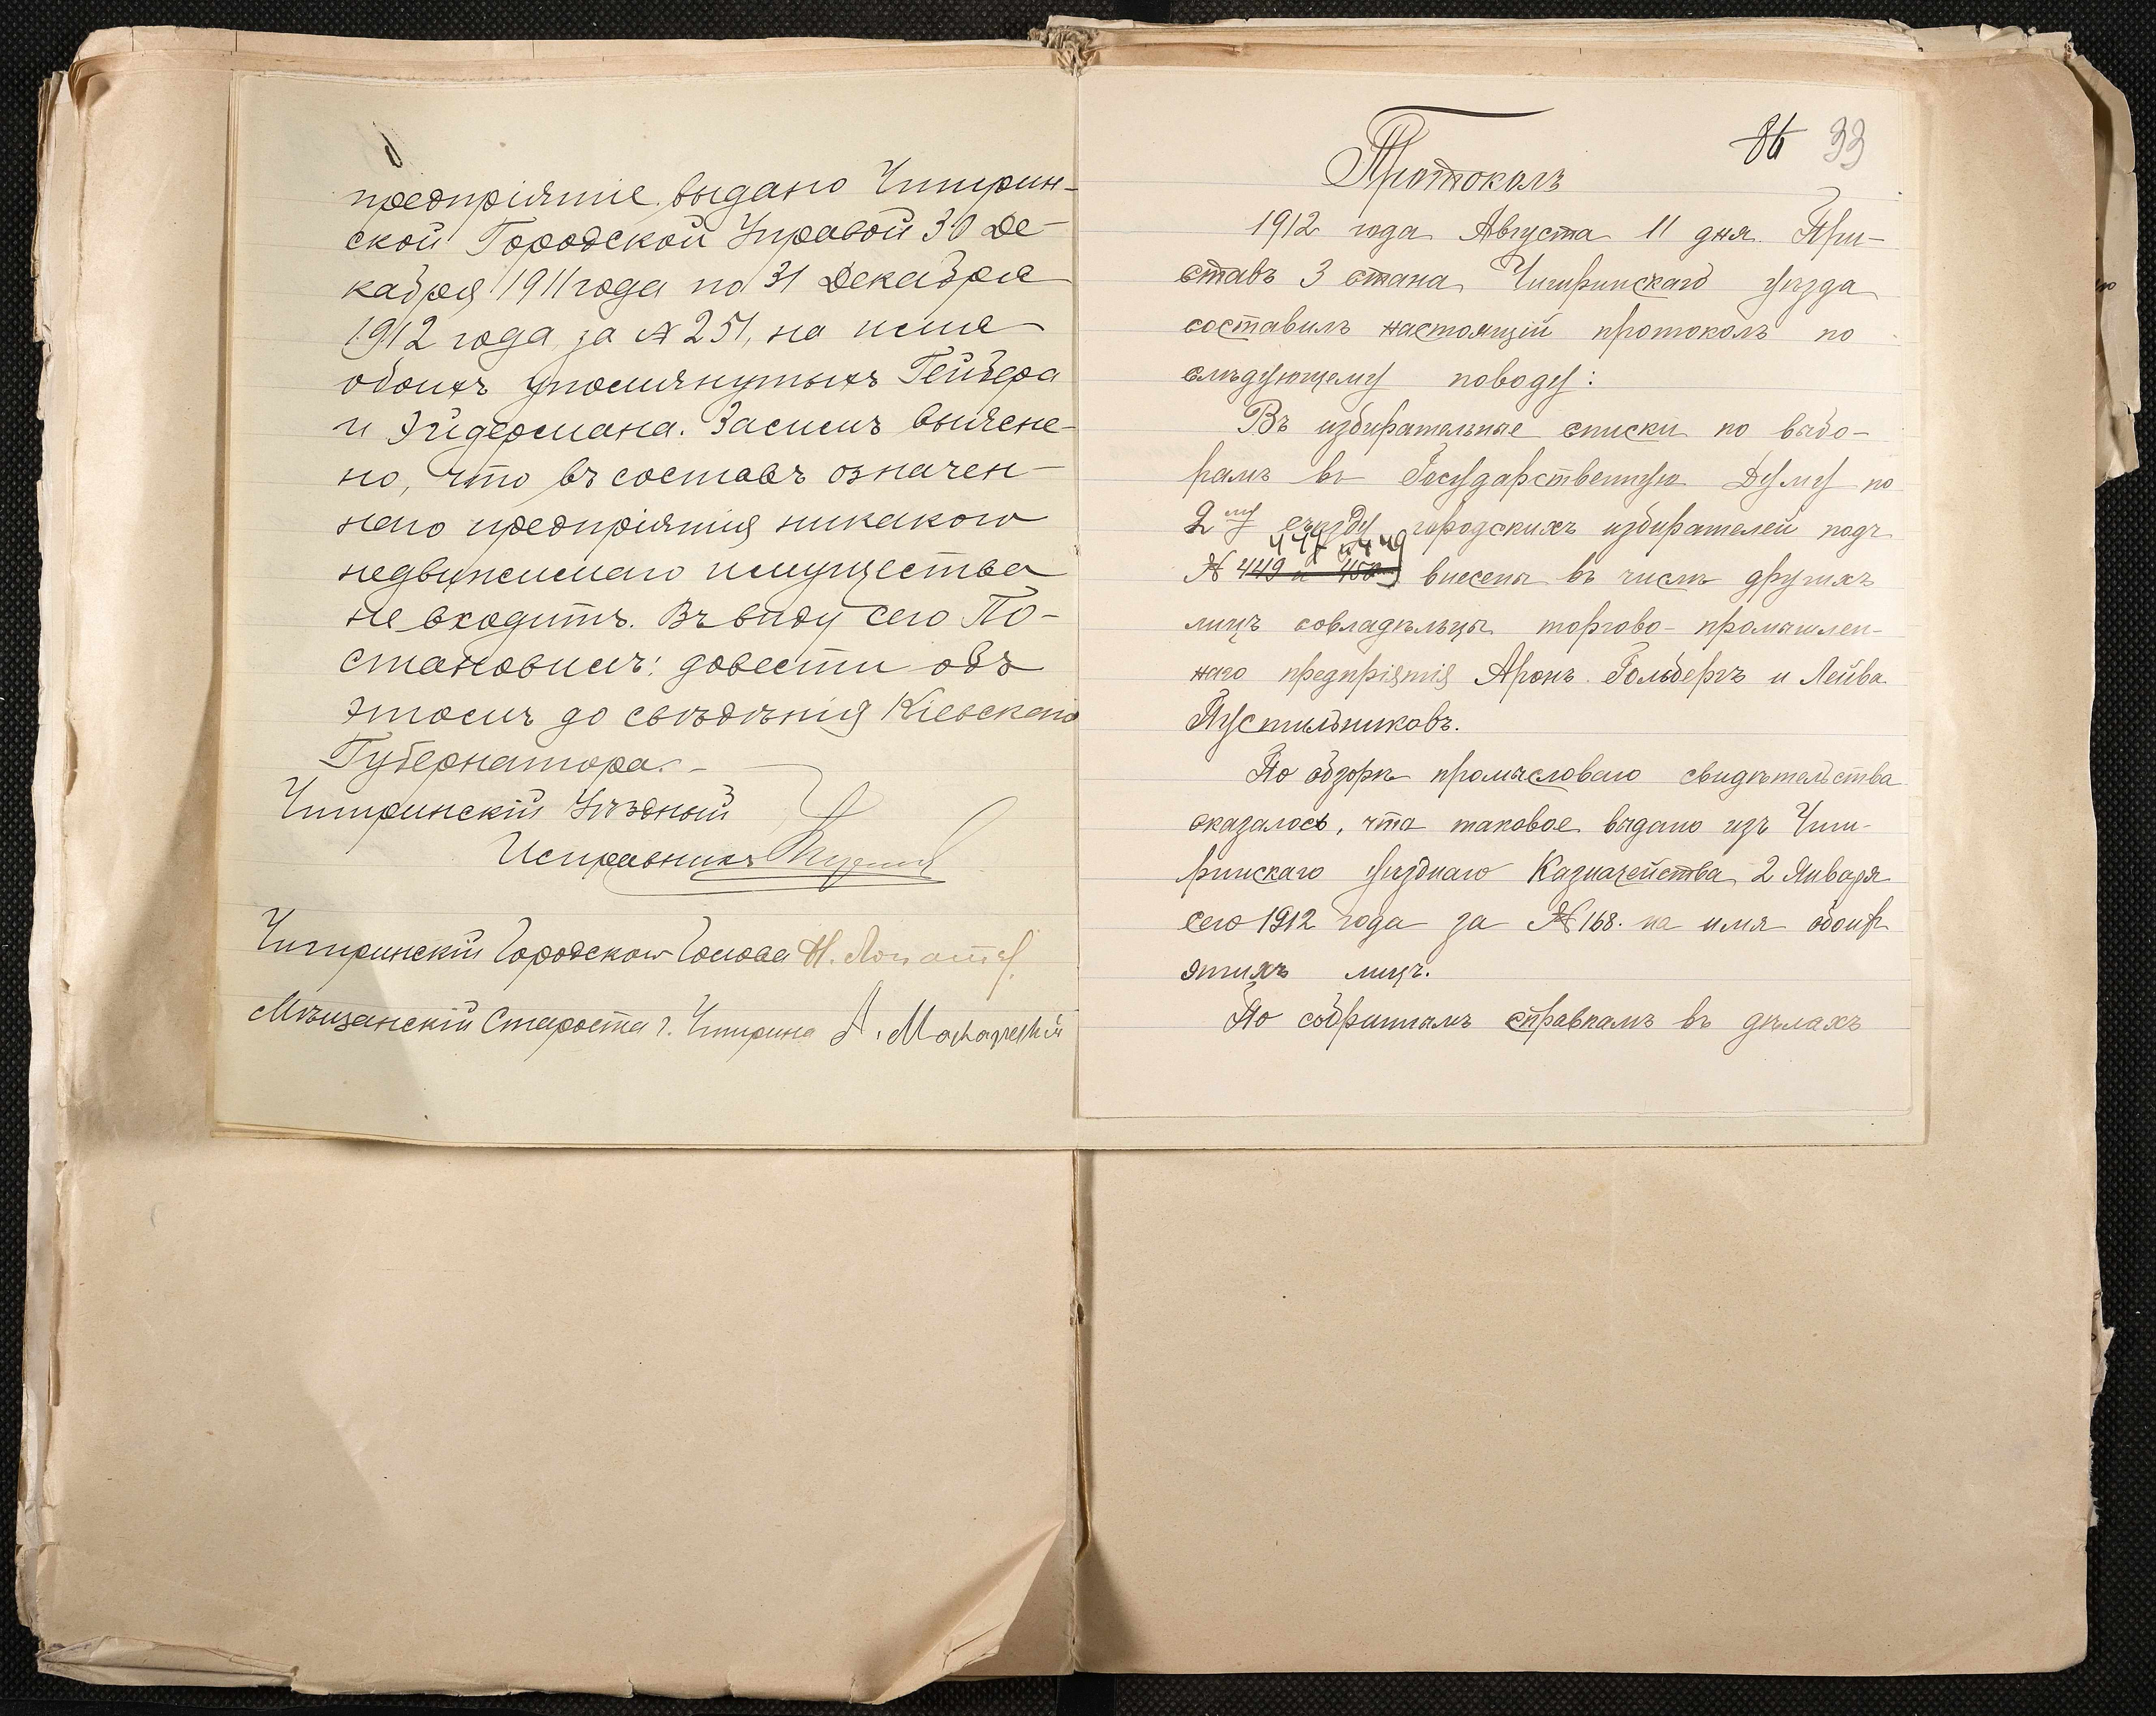 предпріятіе выдано Чигирин-
ской Городской Управой 30 Де-
кабря 1911 года по 31 Декабря
1912 года за № 251, на имя
обоихъ упомянутыхъ Гейбера
и Эйдермана. Засимъ выясне-
но, что въ составъ означен-
наго предпріятія никакого
недвижимаго имущества
не входитъ. Въ виду сего По-
становилъ: довести объ
этомъ до свѣдѣнія Кіевскаго
Губернатора. -
Чигиринскій Уѣздный
Исправникъ
Чигиринскій Городской Голова
Мѣщанскій Староста г. Чигирина
86 33
Протоколъ
1912 года Августа 11 дня. При-
ставъ 3 стана Чигиринскаго уѣзда
составилъ настоящій протоколъ по
слѣдующему поводу:
Въ избирательные списки по выбо-
рамъ въ Государственную Думу по
2му съѣзду городскихъ избирателей подъ
№ 449 и 450 внесены въ числѣ другихъ
лицъ совладѣльцы торгово-промышлен-
наго предпріятія Аронъ Гольбергъ и Лейба
Пустильниковъ.
По обзорѣ промысловаго свидѣтельства
оказалось, что таковое выдано изъ Чиги-
ринскаго уѣзднаго Казначейства 2 Января
сего 1912 года за № 168. на имя обоихъ
этихъ лицъ.
По собраннымъ справкамъ въ дѣлахъ